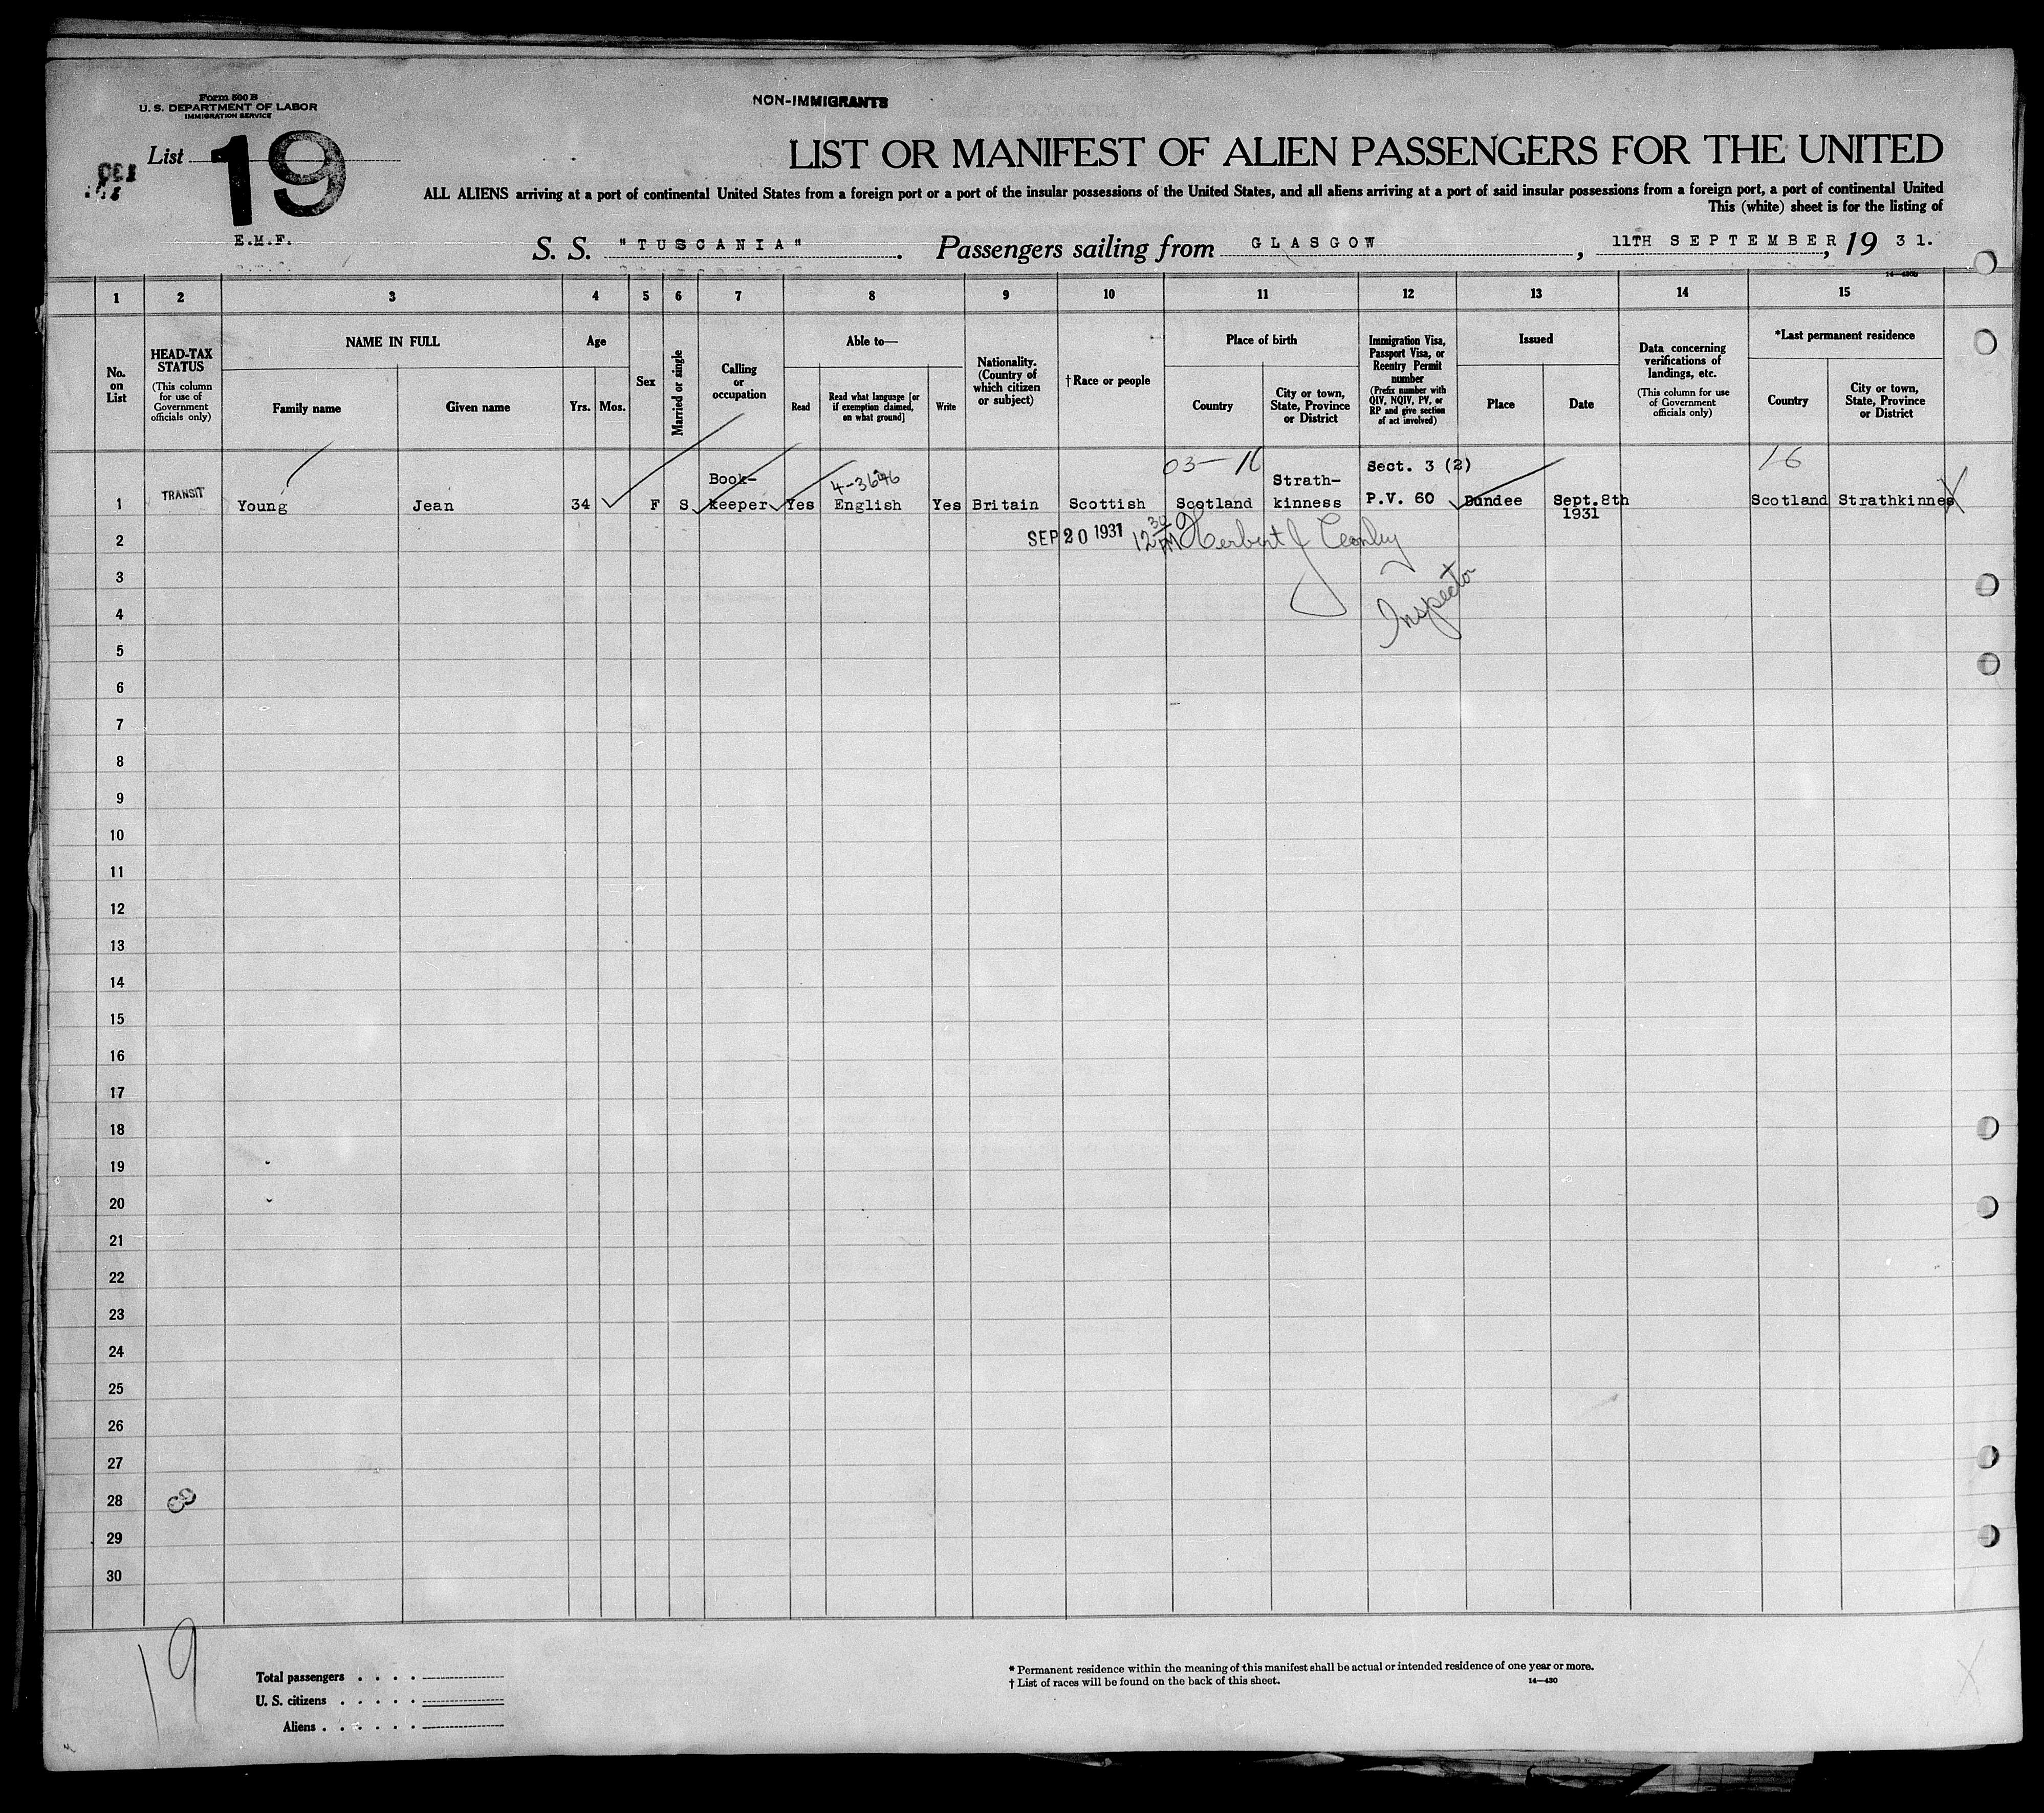 Form 500 B
U. S. DEPARTMENT OF LABOR
IMMIGRATION SERVICE
NON-IMMIGRANTS
List 19
LIST OR MANIFEST OF ALIEN PASSENGERS FOR THE UNITED
ALL ALIENS arriving at a port of continental United States from a foreign port or a port of the insular possessions of the United States, and all aliens arriving at a port of said insular possessions from a foreign port, a port of continental United
This (white) sheet is for the listing of
E.M.F.
S. S. "TUSCANIA". Passengers sailing from GLASGOW, 11TH SEPTEMBER, 19 31.
14—430b
1 2 3 4 5 6 7 8 9 10 11 12 13 14 15
No. on List
HEAD-TAX STATUS (This column for use of Government officials only)
NAME IN FULL
Family name
Given name
Age
Yrs.
Mos.
Sex
Married or single
Calling or occupation
Able to—
Read
Read what language [or if exemption claimed, on what ground]
Write
Nationality. (Country of which citizen or subject)
†Race or people
Place of birth
Country
City or town, State, Province or District
Immigration Visa, Passport Visa, or Reentry Permit number (Prefix number with QIV, NQIV, PV, or RP and give section of act involved)
Issued
Place
Date
Data concerning verifications of landings, etc. (This column for use of Government officials only)
*Last permanent residence
Country
City or town, State, Province or District
03—16
16
4-3696
1 TRANSIT Young Jean 34 F S Book-keeper Yes English Yes Britain Scottish Scotland Strath-kinness Sect. 3 (2) P.V. 60 Dundee Sept.8th 1931 Scotland Strathkinnes
2 SEP 20 1931 12 30 PM Herbert J
Inspector
3
4
5
6
7
8
9
10
11
12
13
14
15
16
17
18
19
20
21
22
23
24
25
26
27
28
29
30
19
Total passengers . . . .
U. S. citizens . . . . .
Aliens . . . . . .
* Permanent residence within the meaning of this manifest shall be actual or intended residence of one year or more.
† List of races will be found on the back of this sheet.
14—430